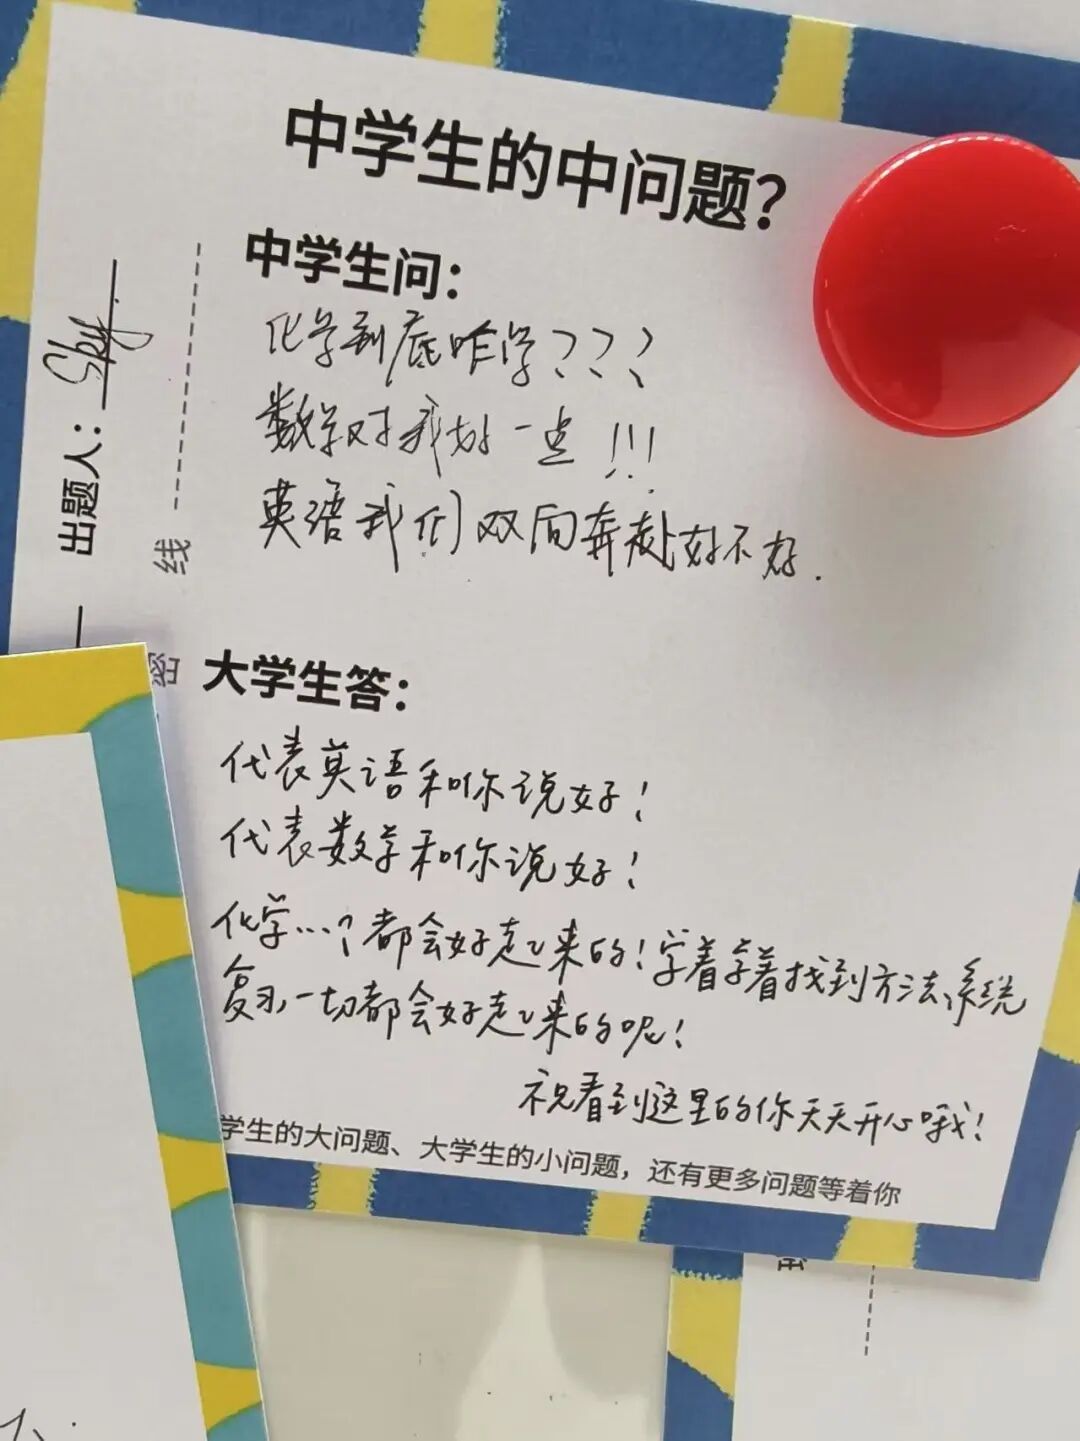 中学生的中问题？
中学生问：
化学到底咋学？？？
数学对我好一点！！！
英语我们双向奔赴好不好.
出题人：Sky.
线
密
大学生答：
代表英语和你说好！
代表数学和你说好！
化学…？都会好起来的！学着学着找到方法、系统
复习一切都会好起来的呢！
祝看到这里的你天天开心哦！
学生的大问题、大学生的小问题，还有更多问题等着你